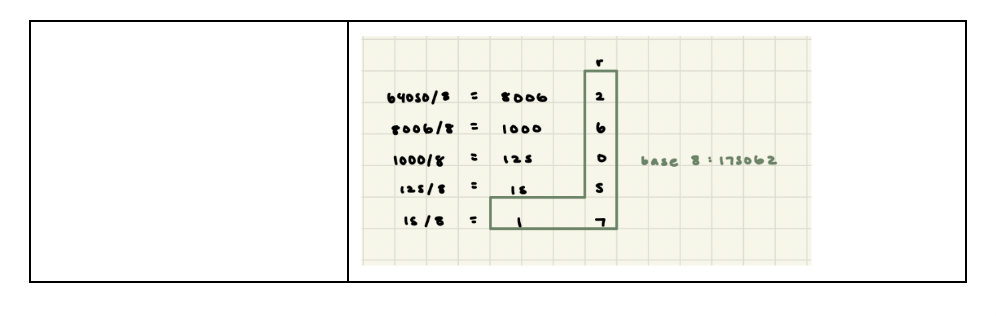 r
64050/8 = 8006 2
8006/8 = 1000 6
1000/8 = 125 0
125/8 = 15 5
15/8 = 1 7
base 8: 175062